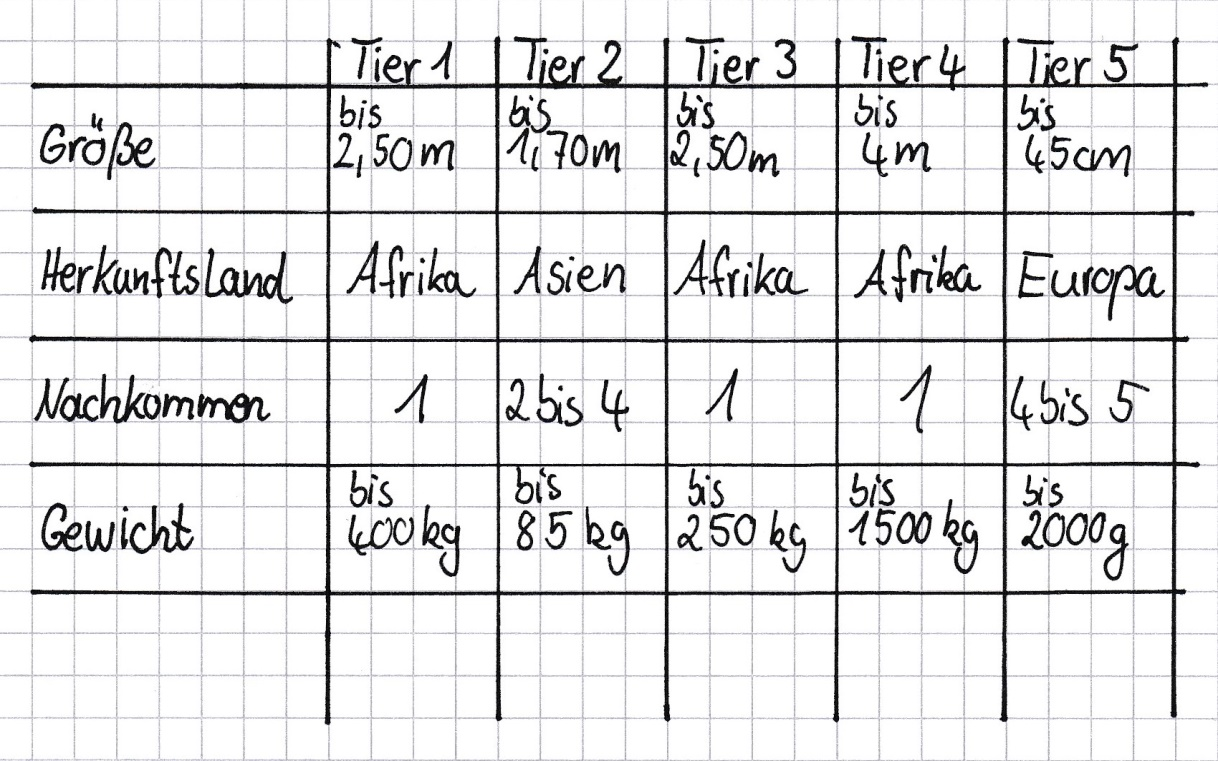 Tier 1 Tier 2 Tier 3 Tier 4 Tier 5
Größe bis 2,50m bis 1,70m bis 2,50m bis 4m bis 45cm
Herkunftsland Afrika Asien Afrika Afrika Europa
Nachkommen 1 2 bis 4 1 1 4 bis 5
Gewicht bis 400 kg bis 85 kg bis 250 kg bis 1500 kg bis 2000g